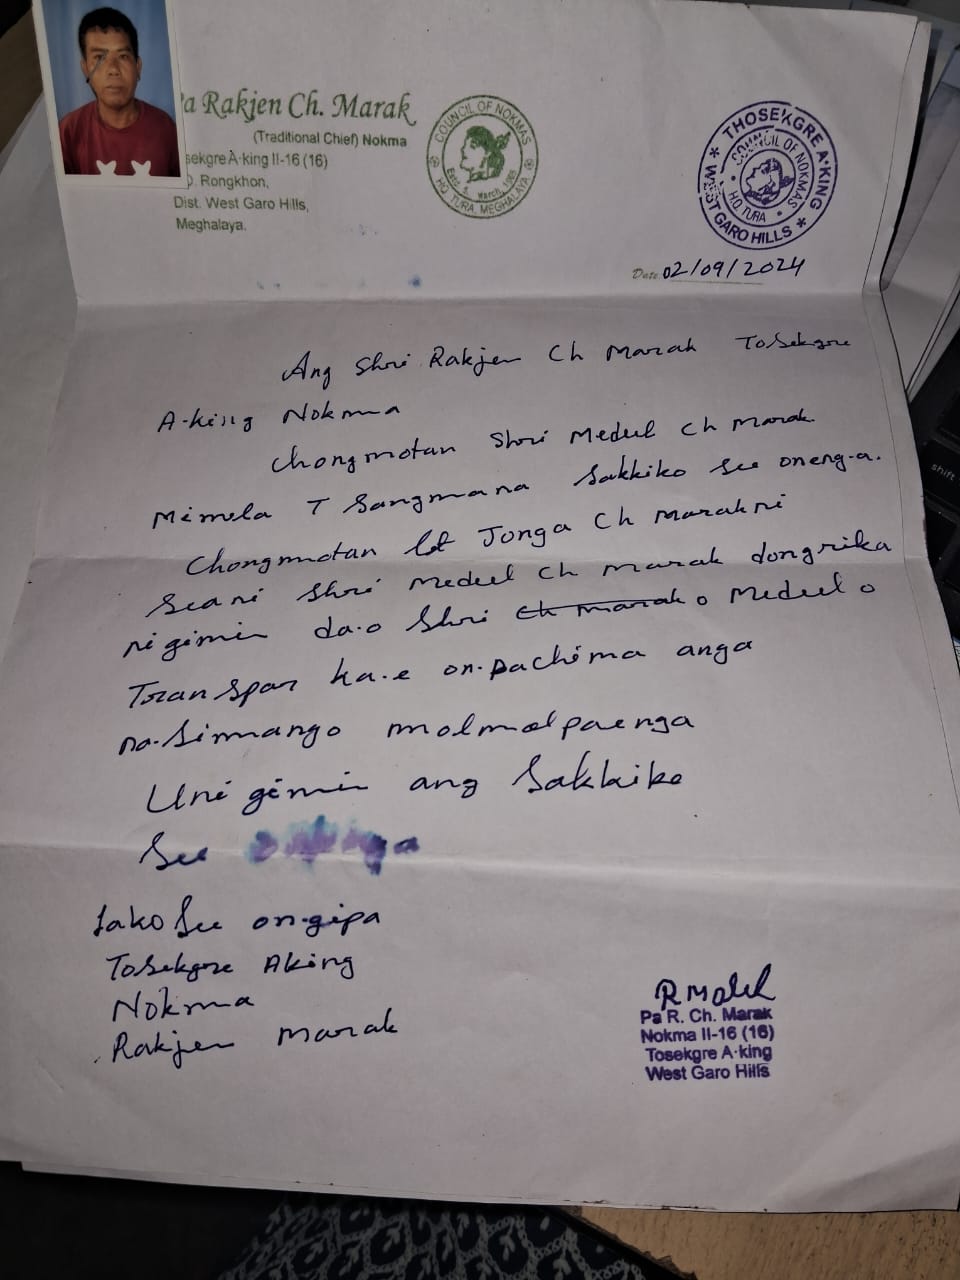 Pa Rakjen Ch. Marak
(Traditional Chief) Nokma
sekgre A·king II-16 (16)
Rongkhon,
Dist. West Garo Hills,
Meghalaya.
COUNCIL OF NOKMAS
Estd. March,
HQ. TURA, MEGHALAYA.
THOSEKGRE A·KING
COUNCIL OF NOKMAS
HQ. TURA
WEST GARO HILLS
Date 02/09/2024
Ang Shri Rakjen Ch Marak Tosekgre
A·king Nokma
Chongmotan Shri Medul Ch Marak
Mimila T Sangmana Sakkiko See oneng-a.
Chongmotan Lt Jonga Ch Marakni
Seani Shri Medul Ch Marak dongrika
ni gimin da·o Shri Ch Marak o Medul o
Transpar ka·e on·pachima anga
na·Simmango molmolpaenga
Uni gimin ang Sakkiko
See
Iako See on·gipa
Tosekgre Aking
Nokma
Rakjen Marak
Pa R. Ch. Marak
Nokma II-16 (16)
Tosekgre A·king
West Garo Hills
shift